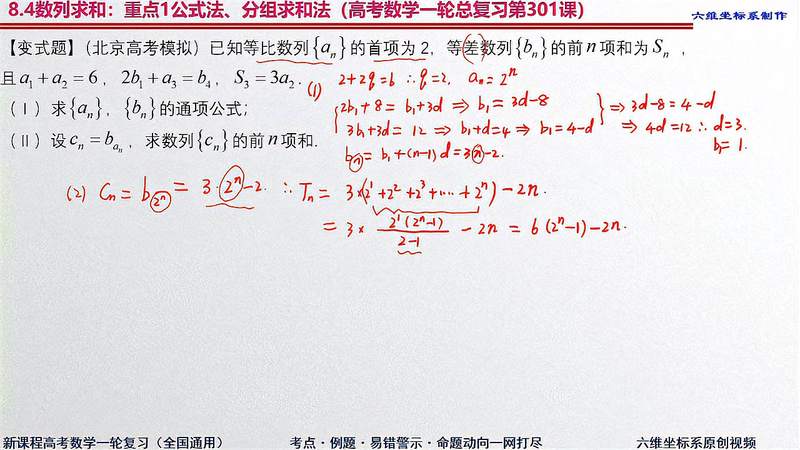 8.4数列求和：重点1公式法、分组求和法（高考数学一轮总复习第301课）
六维坐标系制作
【变式题】（北京高考模拟）已知等比数列{aₙ}的首项为 2，等差数列{bₙ}的前 n 项和为 Sₙ ，
且 a₁ + a₂ = 6 ， 2b₁ + a₃ = b₄ ， S₃ = 3a₂ .
(1) 2+2q=6 ∴q=2, aₙ=2ⁿ
（Ⅰ）求{aₙ}，{bₙ}的通项公式；
2b₁+8 = b₁+3d ⇒ b₁ = 3d-8
3b₁+3d = 12 ⇒ b₁+d=4 ⇒ b₁=4-d
⇒ 3d-8=4-d
⇒ 4d=12 ∴ d=3.
b₁= 1.
（Ⅱ）设 cₙ = b_{aₙ} ，求数列{cₙ}的前 n 项和.
bₙ = b₁+(n-1)d=3n-2.
(2) Cₙ = b_{2ⁿ} = 3·2ⁿ-2. ∴ Tₙ = 3×(2¹+2²+2³+···+2ⁿ)-2n.
= 3× \frac{2¹(2ⁿ-1)}{2-1} - 2n = 6(2ⁿ-1)-2n.
新课程高考数学一轮复习（全国通用）
考点·例题·易错警示·命题动向一网打尽
六维坐标系原创视频